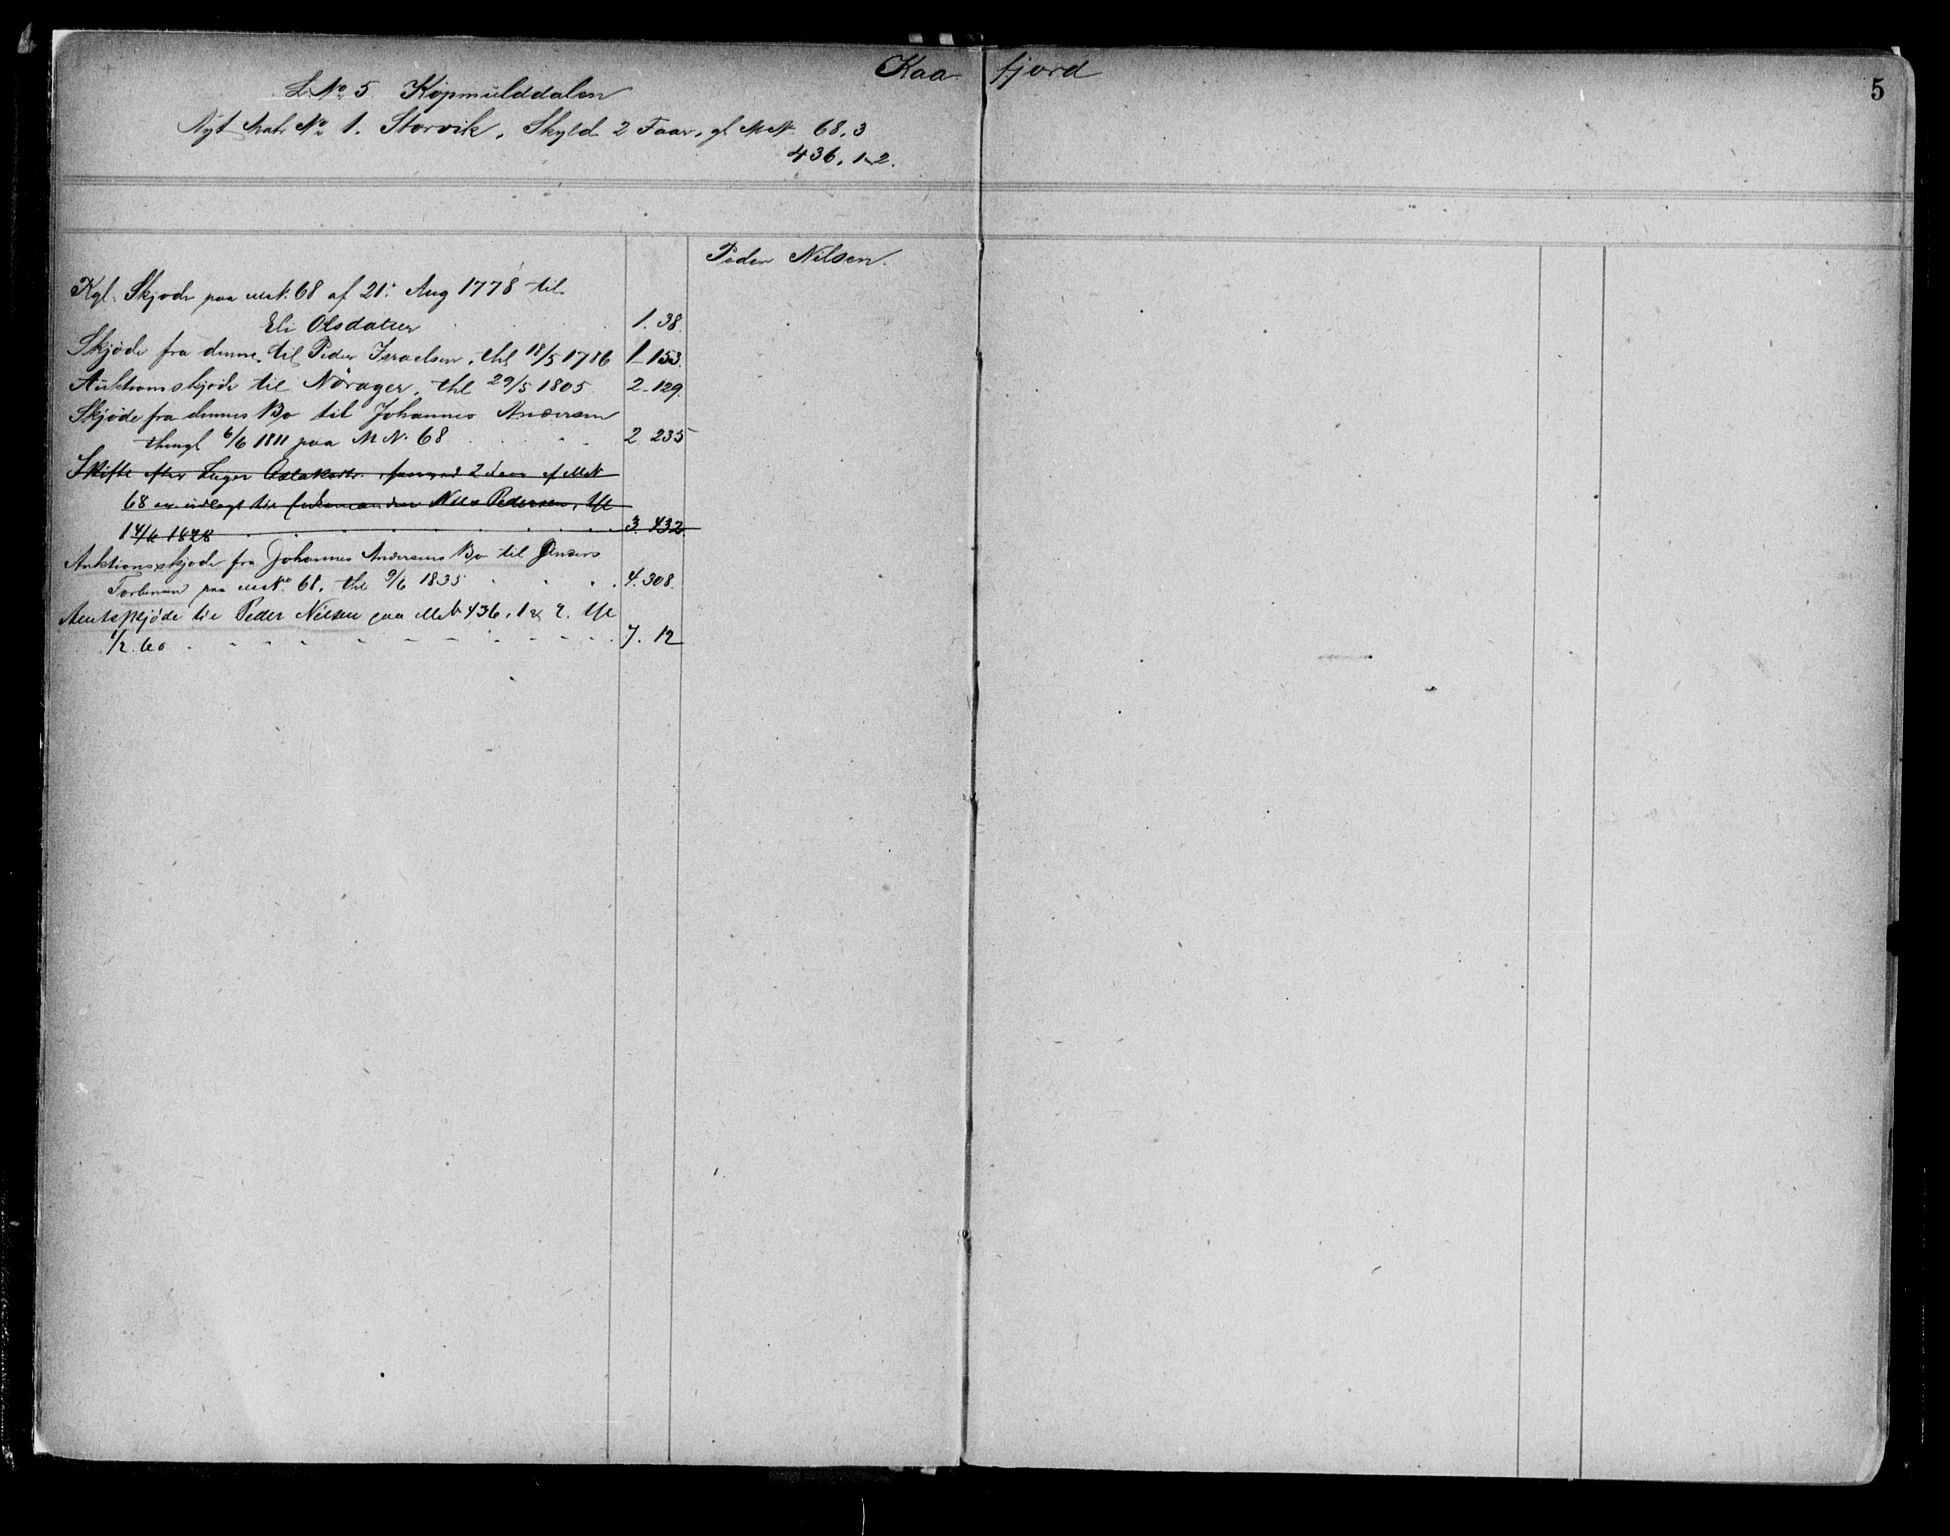 Kaa fjord
5
L.No 5 Kopmulddalen
Nyt Matr No 1. Storvik, Skyld 2 Faar, gl MN. 68.3
436, 1-2.
Peder Nilsen.
Kgl. Skjøde paa MN. 68 af 21. Aug 1778 til
Eli Olsdatter 1. 38.
Skjøde fra denne til Peder Israelsen, thl 18/5 1786 1-153.
Auktionsskjøde til Nørager, thl 29/5 1805. 2-129.
Skjøde fra dennes Bo til Johannes Andersen
thingl 6/6 1811 paa MN. 68 2 235
Skifte efter Inger Aslaksdr. 2 af MN
68 er udlagt til Nils Pedersen, thl
14/6 1828 3. 432.
Auktionsskjøde fra Johannes Andersens Bo til Jensen
paa MNo. 68, thl 9/6 1835 4. 308.
Amtsskjøde til Peder Nielsen paa MN 436, 1 & 2. thl
1/2 60 7. 12